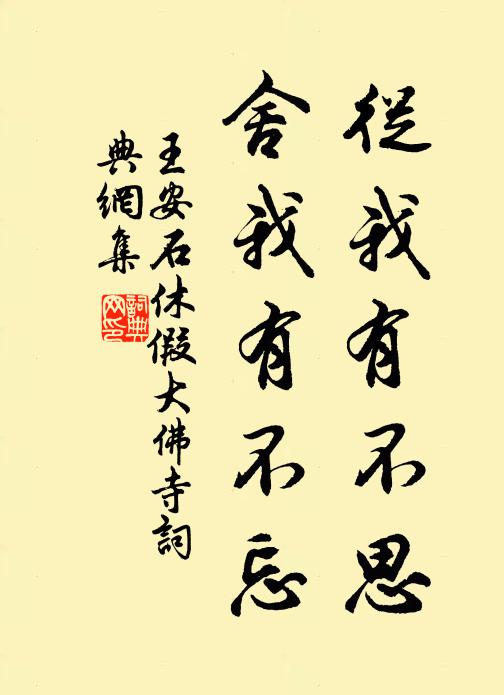 從我有不思
舍我有不忘
王安石休假大佛寺詞
典網集
詞典
网印